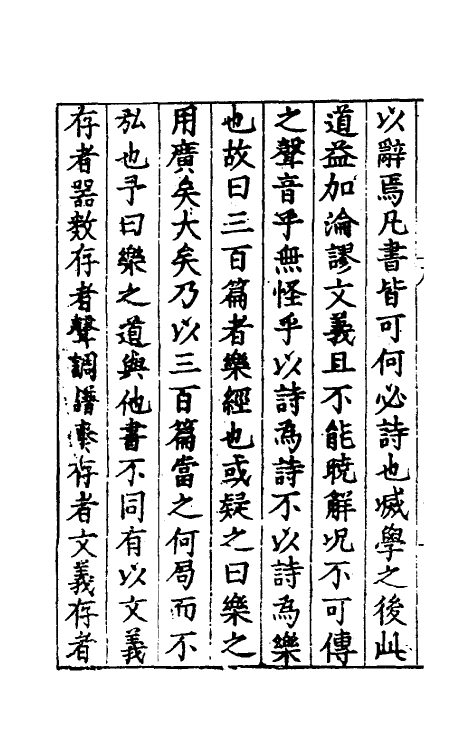 以辭焉凡書皆可何必詩也滅學之後此
道益加淪謬文義且不能曉解况不可傳
之聲音乎無怪乎以詩為詩不以詩為樂
也故曰三百篇者樂經也或疑之曰樂之
用廣矣大矣乃以三百篇當之何局而不
弘也予曰樂之道與他書不同有以文義
存者器數存者聲調譜奏存者文義存者